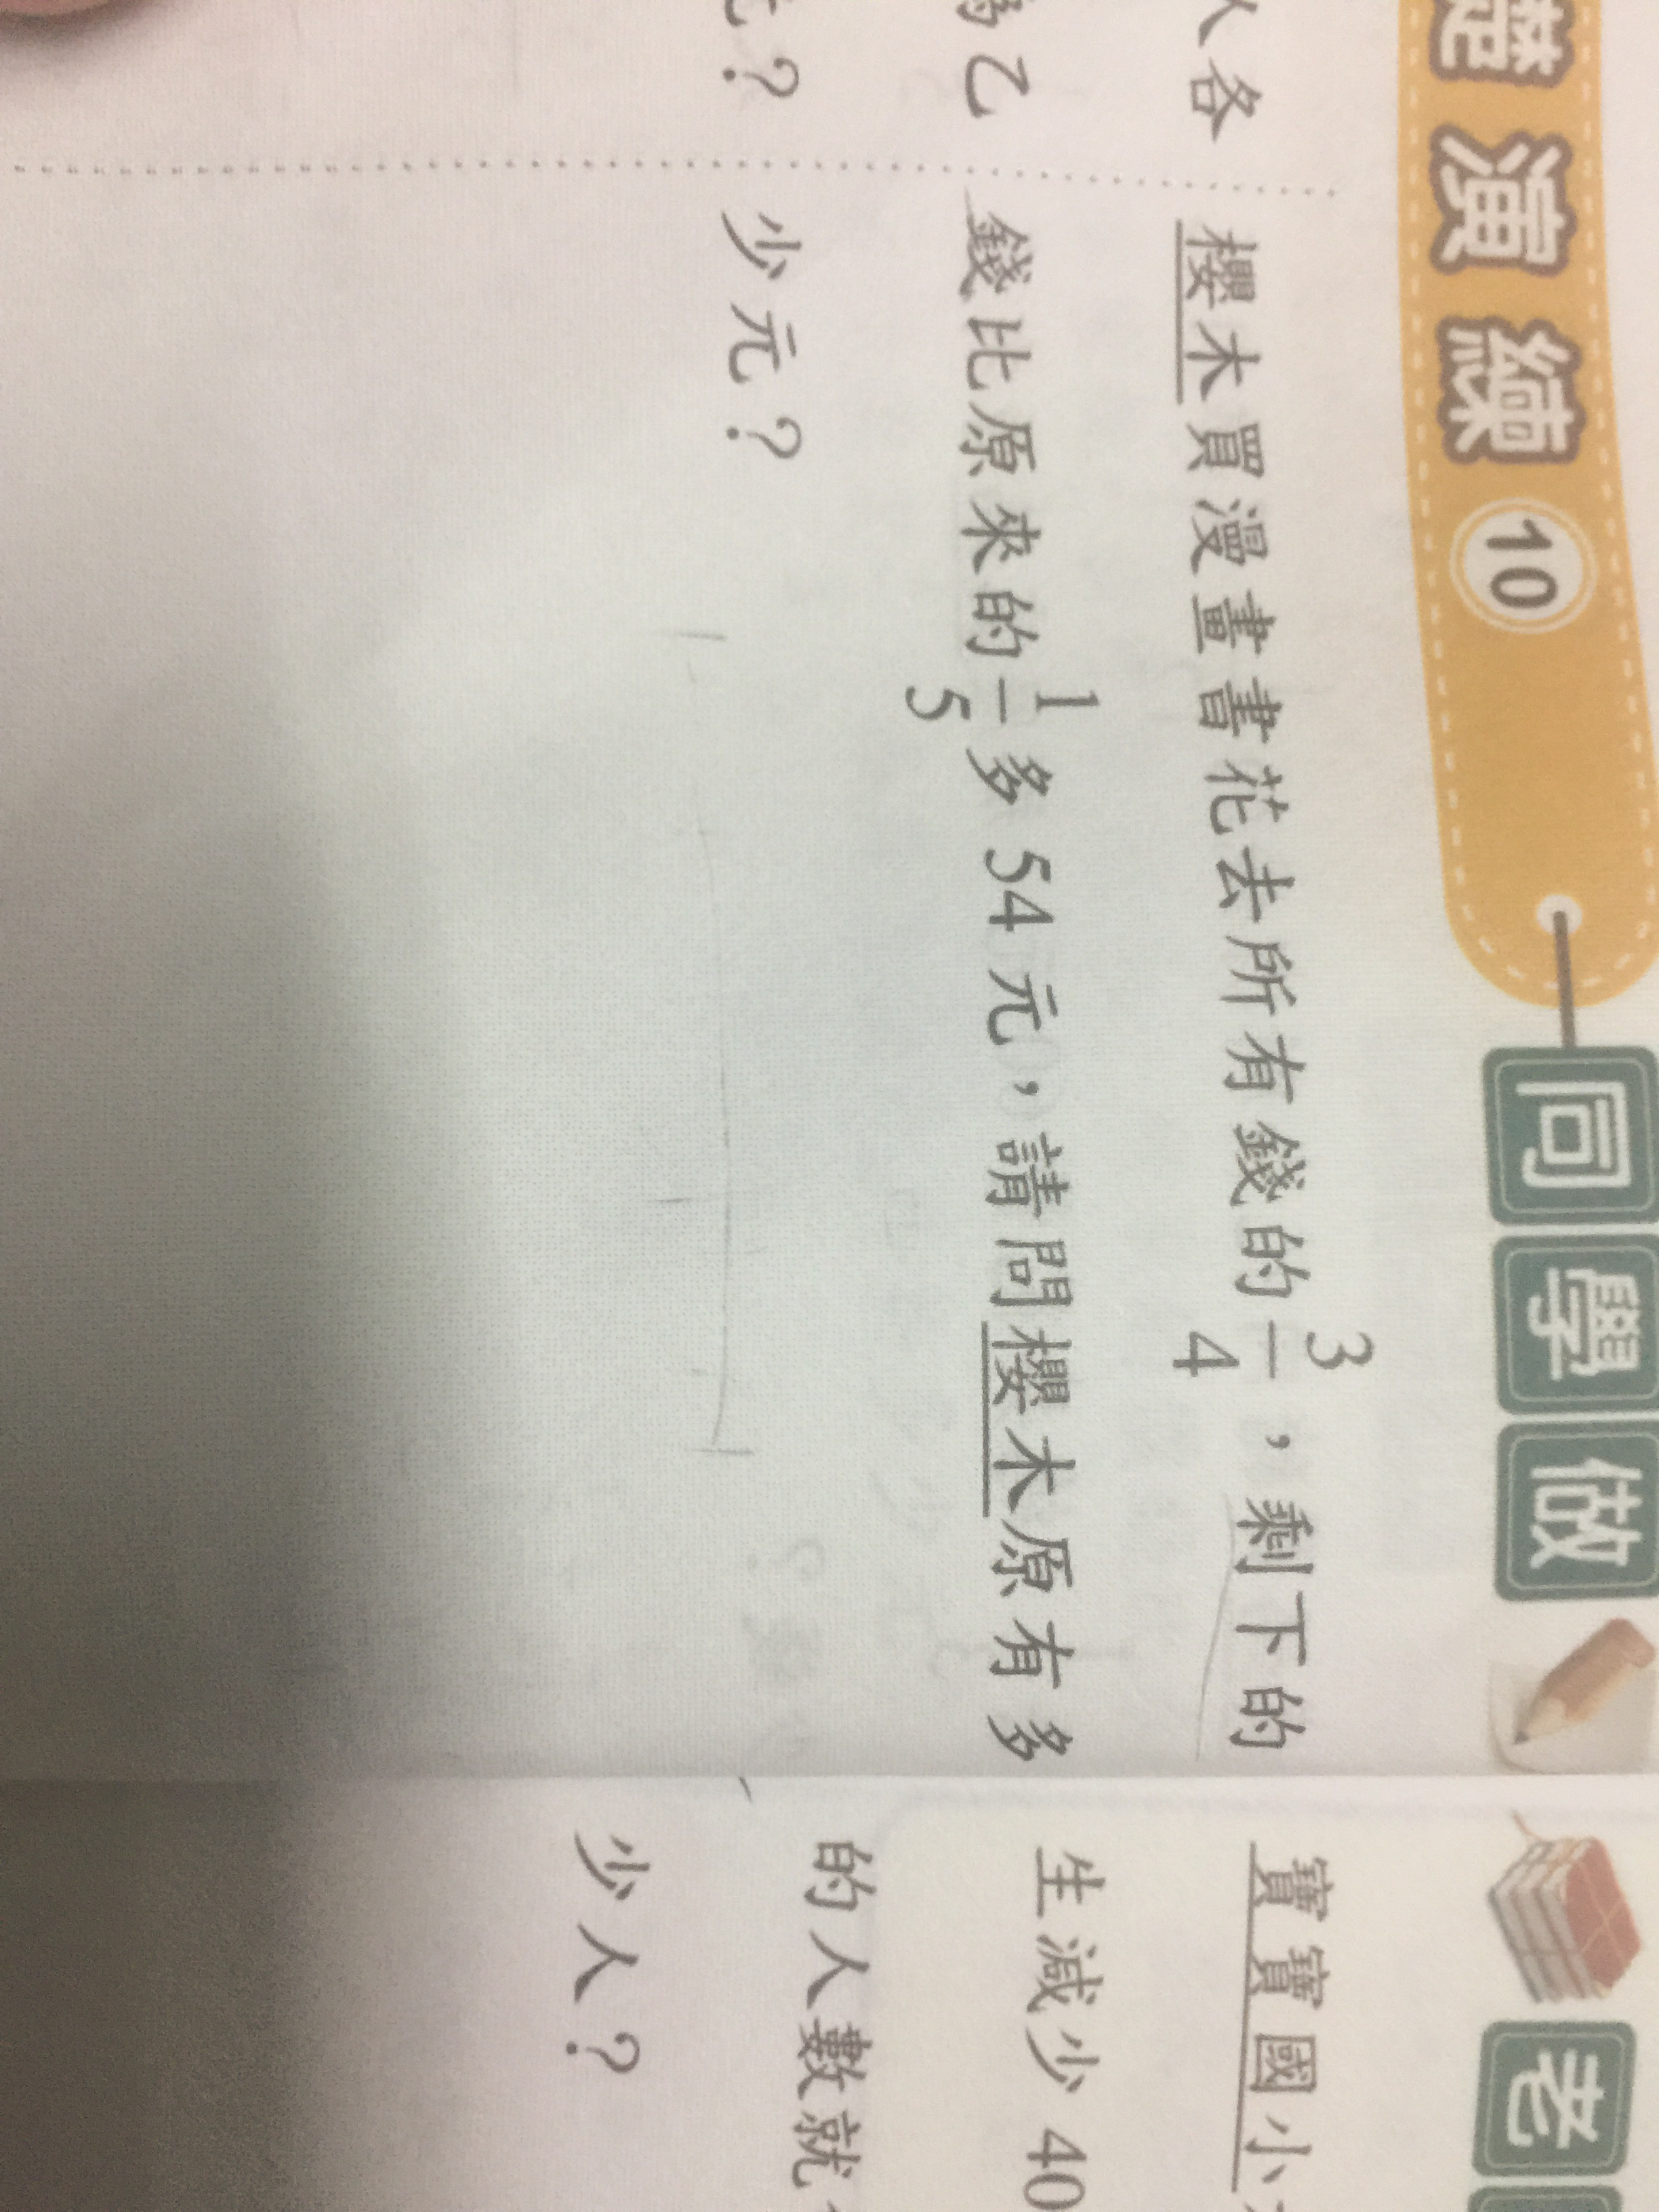 演練 10
同學做
老
人各
為乙
元？
櫻木買漫畫書花去所有錢的3/4，剩下的
錢比原來的1/5多54元，請問櫻木原有多
少元？
寶寶國小
生減少40
的人數就
少人？